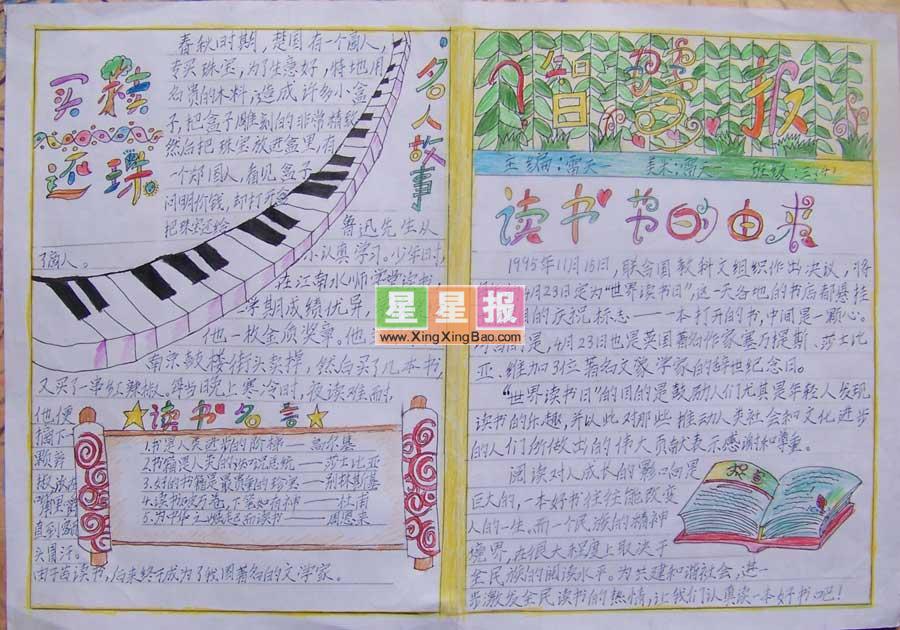 买椟
还珠
春秋时期，楚国有一个商人，
专买珠宝，为了生意好，特地用
名贵的木料，造成许多小盒
子，把盒子雕刻的非常精致
然后把珠宝放进盒里。有
一个郑国人，看见盒子
问明价钱，却打开盒
把珠宝还给
了商人。
名人故事
鲁迅先生从
小认真学习。少年时，
在江南水师学堂读书，
学期成绩优异，
他一枚金质奖章。他
南京鼓楼街头卖掉，然后买了几本书，
又买了一串红辣椒。每当晚上寒冷时，夜读难耐，
他便
摘下一
颗辣
椒，放在
嘴里
直到
头冒汗。
由于苦读书，后来终于成为了我国著名的文学家。
读书名言
1.书是人类进步的阶梯——高尔基
2.书籍是人类的——莎士比亚
3.好的书籍是最贵重的珍宝——别林斯基
4.读书破万卷，下笔如有神——杜甫
5.为中华之崛起而读书——周恩来
报
主编：雷天 美术：雷天 班级：三
读书节的由来
1995年11月15日，联合国教科文组织作出决议，将
4月23日定为“世界读书日”，这一天各地的书店都悬挂
的庆祝标志——一本打开的书，中间是一颗心。
的是，4月23日也是英国著名作家塞万提斯、莎士比
亚、维加3位著名文豪学家的辞世纪念日。
“世界读书日”的目的是鼓励人们尤其是年轻人发现
读书的乐趣，并以此对那些推动人类社会和文化进步
的人们所做出的伟大贡献表示感谢和尊重。
阅读对人成长的影响是
巨大的，一本好书往往能改变
人的一生。而一个民族的精神
境界，在很大程度上取决于
全民族的阅读水平。为共建和谐社会，进一
步激发全民读书的热情，让我们认真读一本好书吧！
星星报
www.XingXingBao.com